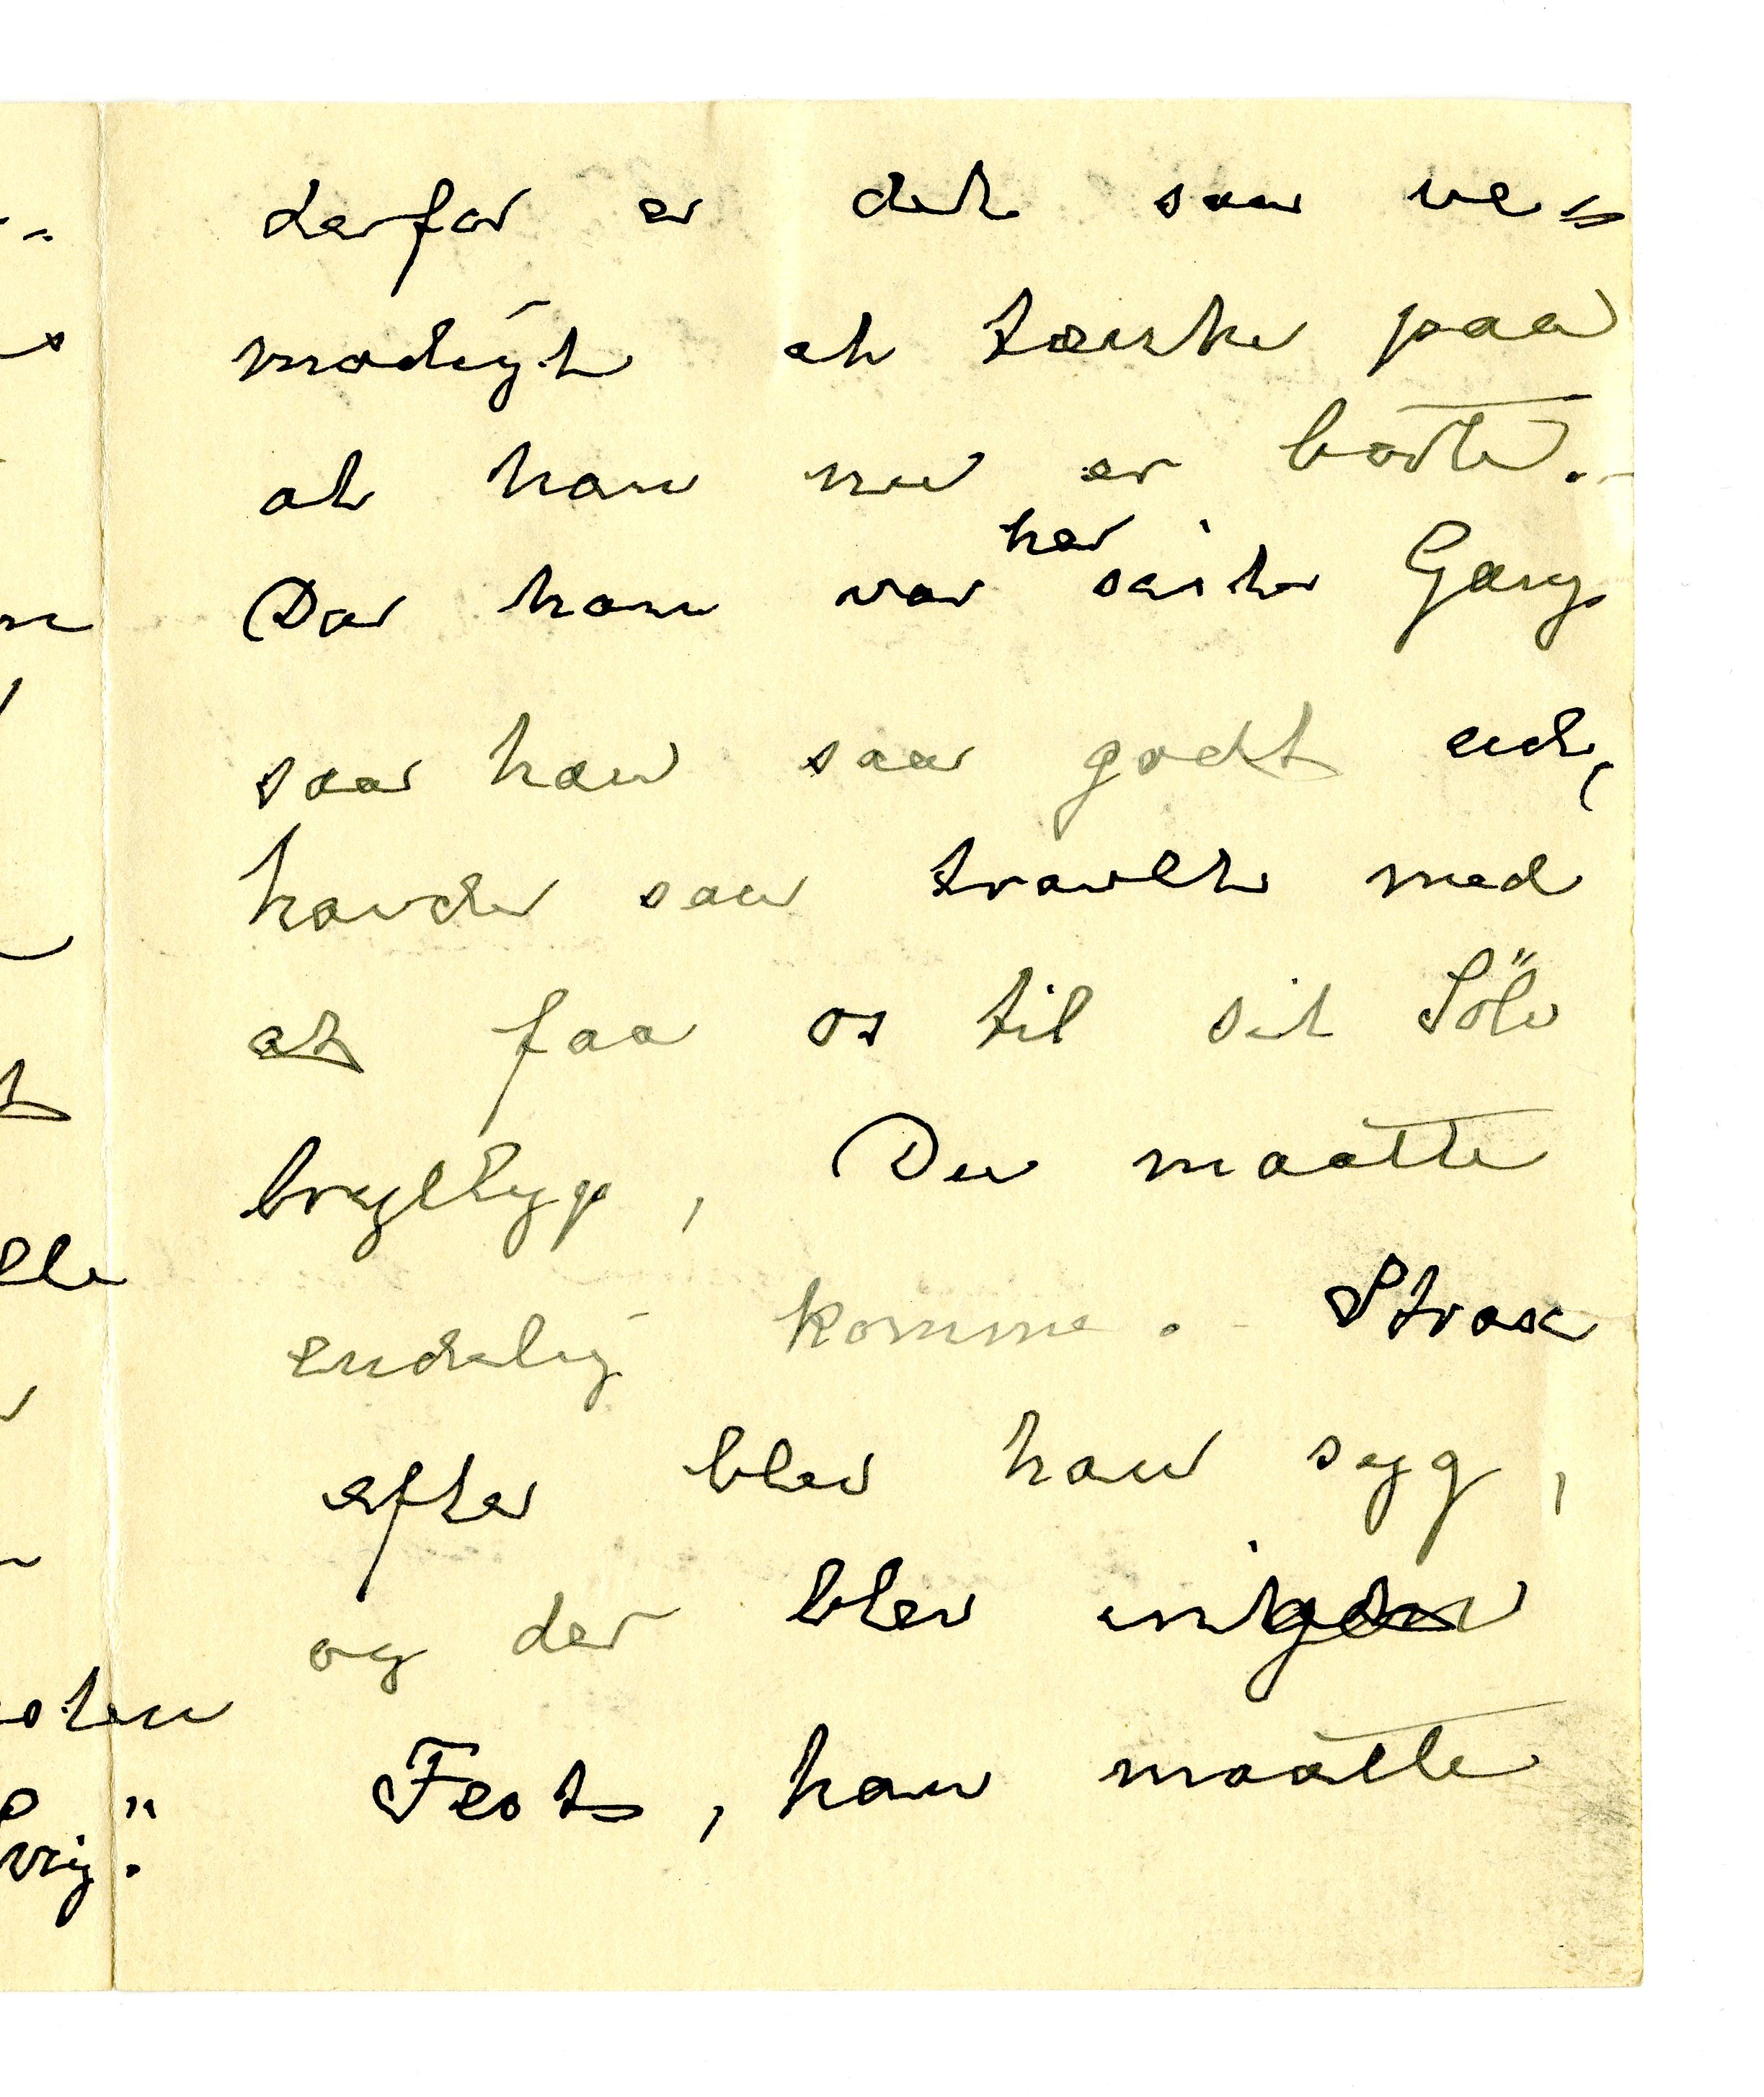 derfor er det saa ve=
modigt at tænke paa
at han nu er borte.-
Da han var her sidste Gang
saa han saa godt ud,
havde saa travlt med
at faa os til sit Sölv
bryllup, Du maatte
endelig komme. - Strax
efter blev han syg,
og der blev ingen
Fest, han maatte